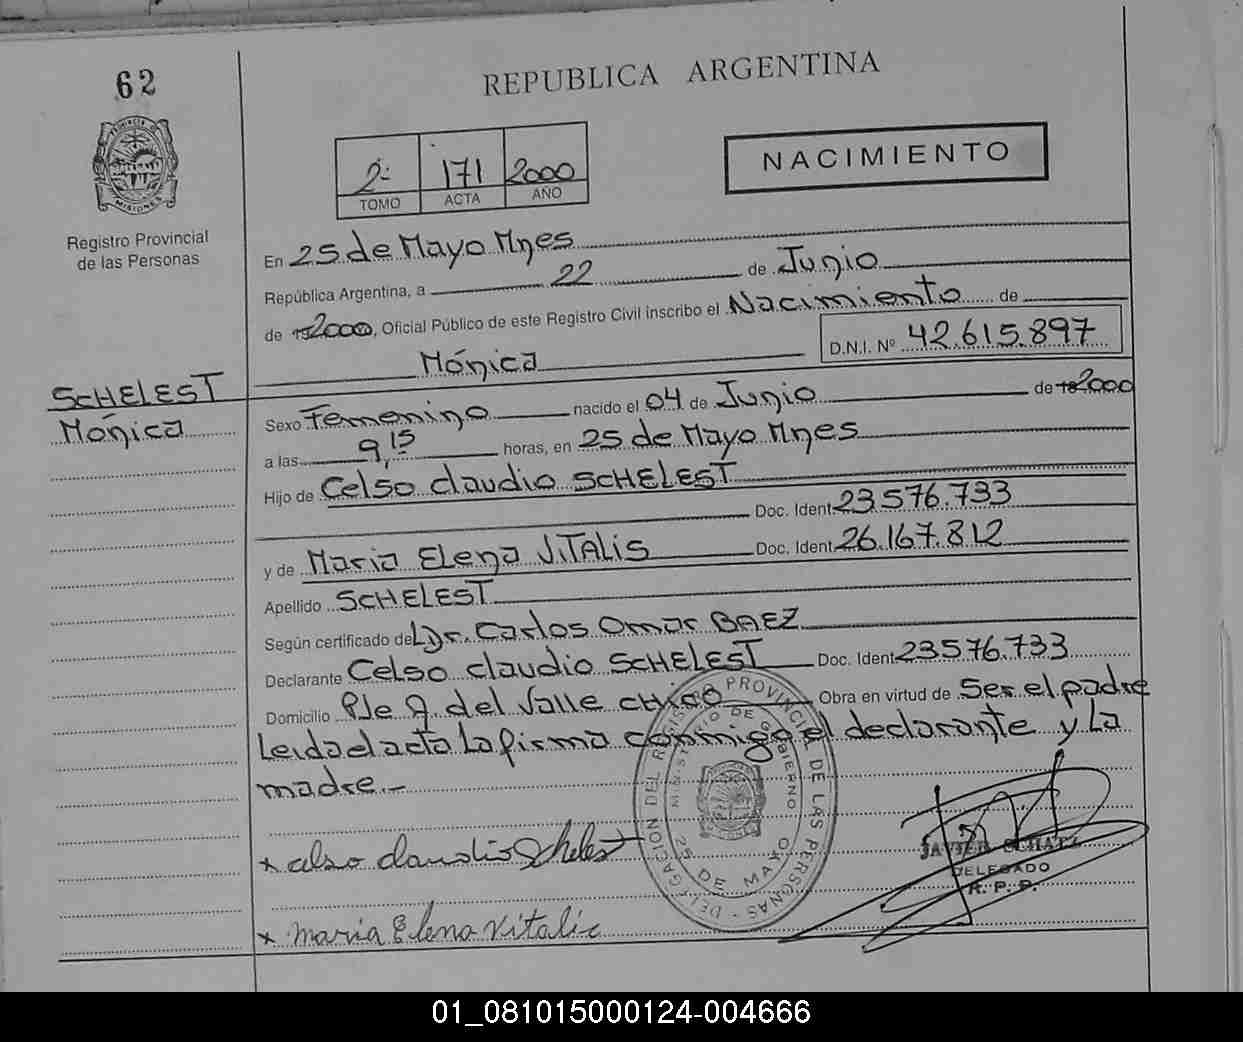 62
REPUBLICA ARGENTINA
PROVINCIA DE MISIONES
Registro Provincial
de las Personas
2º 171 2000
TOMO ACTA AÑO
NACIMIENTO
En 25 de Mayo Mnes
República Argentina, a 22 de Junio
de 2000, Oficial Público de este Registro Civil inscribo el Nacimiento de
Mónica D.N.I. Nº 42.615.897
SCHELEST
Mónica
Sexo Femenino nacido el 04 de Junio de 2000
a las 9,15 horas, en 25 de Mayo Mnes
Hijo de Celso Claudio SCHELEST
Doc. Ident 23.576.733
y de Maria Elena VITALIS Doc. Ident 26.167.812
Apellido SCHELEST
Según certificado del Dr. Carlos Omar BAEZ
Declarante Celso Claudio SCHELEST Doc. Ident 23576.733
Domicilio del Valle CHICO Obra en virtud de Ser el padre
Leida el acta la firma conmigo el declarante y La
madre.-
DELEGACION DEL REGISTRO PROVINCIAL DE LAS PERSONAS -
MINISTERIO DE GOBIERNO
25 DE MAYO
x celso claudio Schelest
JAVIER SCHATZ
DELEGADO
R. P. P.
x maria Elena Vitalis
01_081015000124-004666